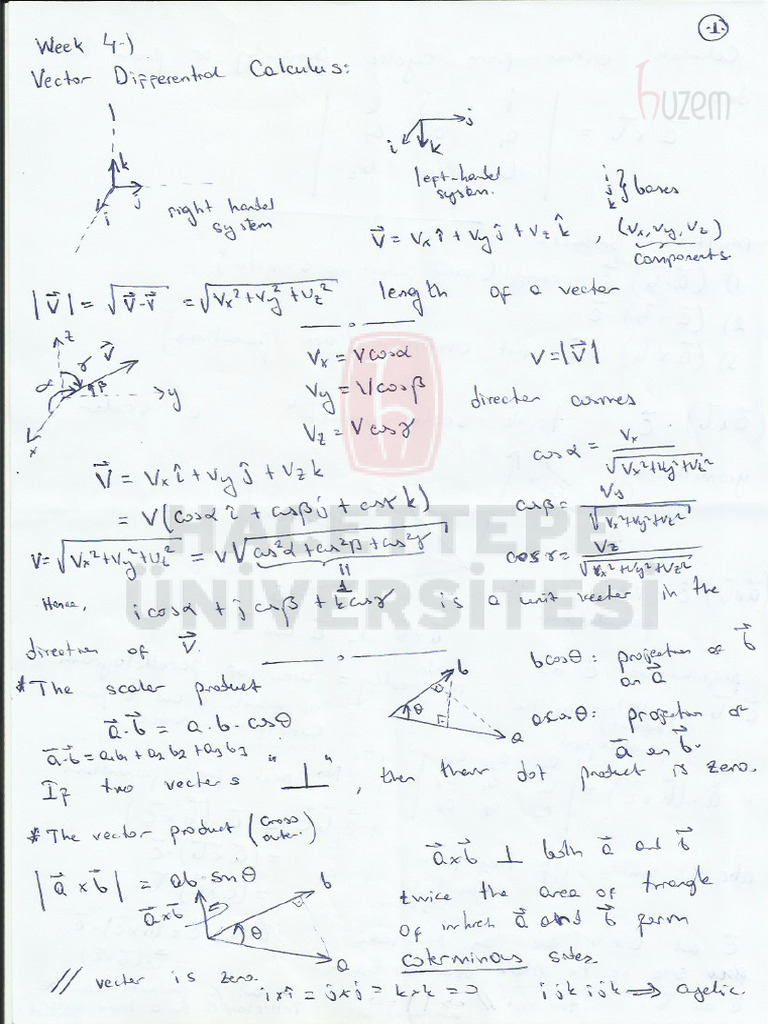 -1-
Week 4-)
huzem
Vector Differential Calculus:
k
j
i
right handed system
j
i
k
left-handed system.
i
j } bases
k
V⃗ = Vx î + Vy ĵ + Vz k̂ , (Vx, Vy, Vz)
components
|V⃗| = √(V⃗·V⃗) = √(Vx² + Vy² + Vz²) length of a vector
z V⃗
α γ β
y
x
Vx = V cosα
V = |V⃗|
Vy = V cosβ
Vz = V cosγ
direction cosines
V⃗ = Vx î + Vy ĵ + Vz k
cosα = Vx / √(Vx² + Vy² + Vz²)
= V (cosα î + cosβ j + cosγ k)
cosβ = Vy / √(Vx² + Vy² + Vz²)
HACETTEPE
V = √(Vx² + Vy² + Vz²) = V √(cos²α + cos²β + cos²γ)
cosγ = Vz / √(Vx² + Vy² + Vz²)
= 1
ÜNİVERSİTESİ
Hence, i cosα + j cosβ + k cosγ is a unit vector in the
direction of V⃗.
* The scalar product
b
θ
a
bcosθ: projection of b⃗ on a⃗
a⃗·b⃗ = a·b·cosθ
acosθ: projection of a⃗ on b⃗.
a⃗·b⃗ = a1b1 + a2b2 + a3b3
If two vectors "⊥", then their dot product is zero.
* The vector product (cross outer.)
|a⃗ × b⃗| = ab·sinθ
a⃗×b⃗
b
θ
a
a⃗×b⃗ ⊥ both a⃗ and b⃗
twice the area of triangle
of which a⃗ and b⃗ form
coterminous sides.
// vector is zero.
i×i = j×j = k×k = 0
i j k i j k ⇒ cyclic.